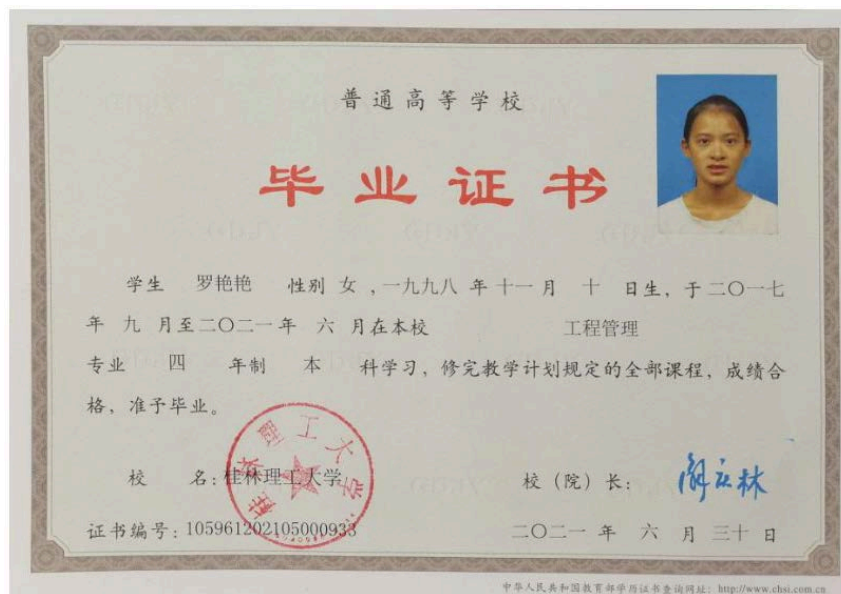 普通高等学校
毕业证书
学生 罗艳艳 性别 女 ,一九九八 年 十一 月 十 日生，于二〇一七
年 九 月至二〇二一年 六 月在本校 工程管理
专业 四 年制 本 科学习，修完教学计划规定的全部课程，成绩合
格，准予毕业。
桂林理工大学
校 名:桂林理工大学 校（院）长:
证书编号:105961202105000933 二〇二一 年 六 月 三十 日
中华人民共和国教育部学历证书查询网址: http://www.chsi.com.cn